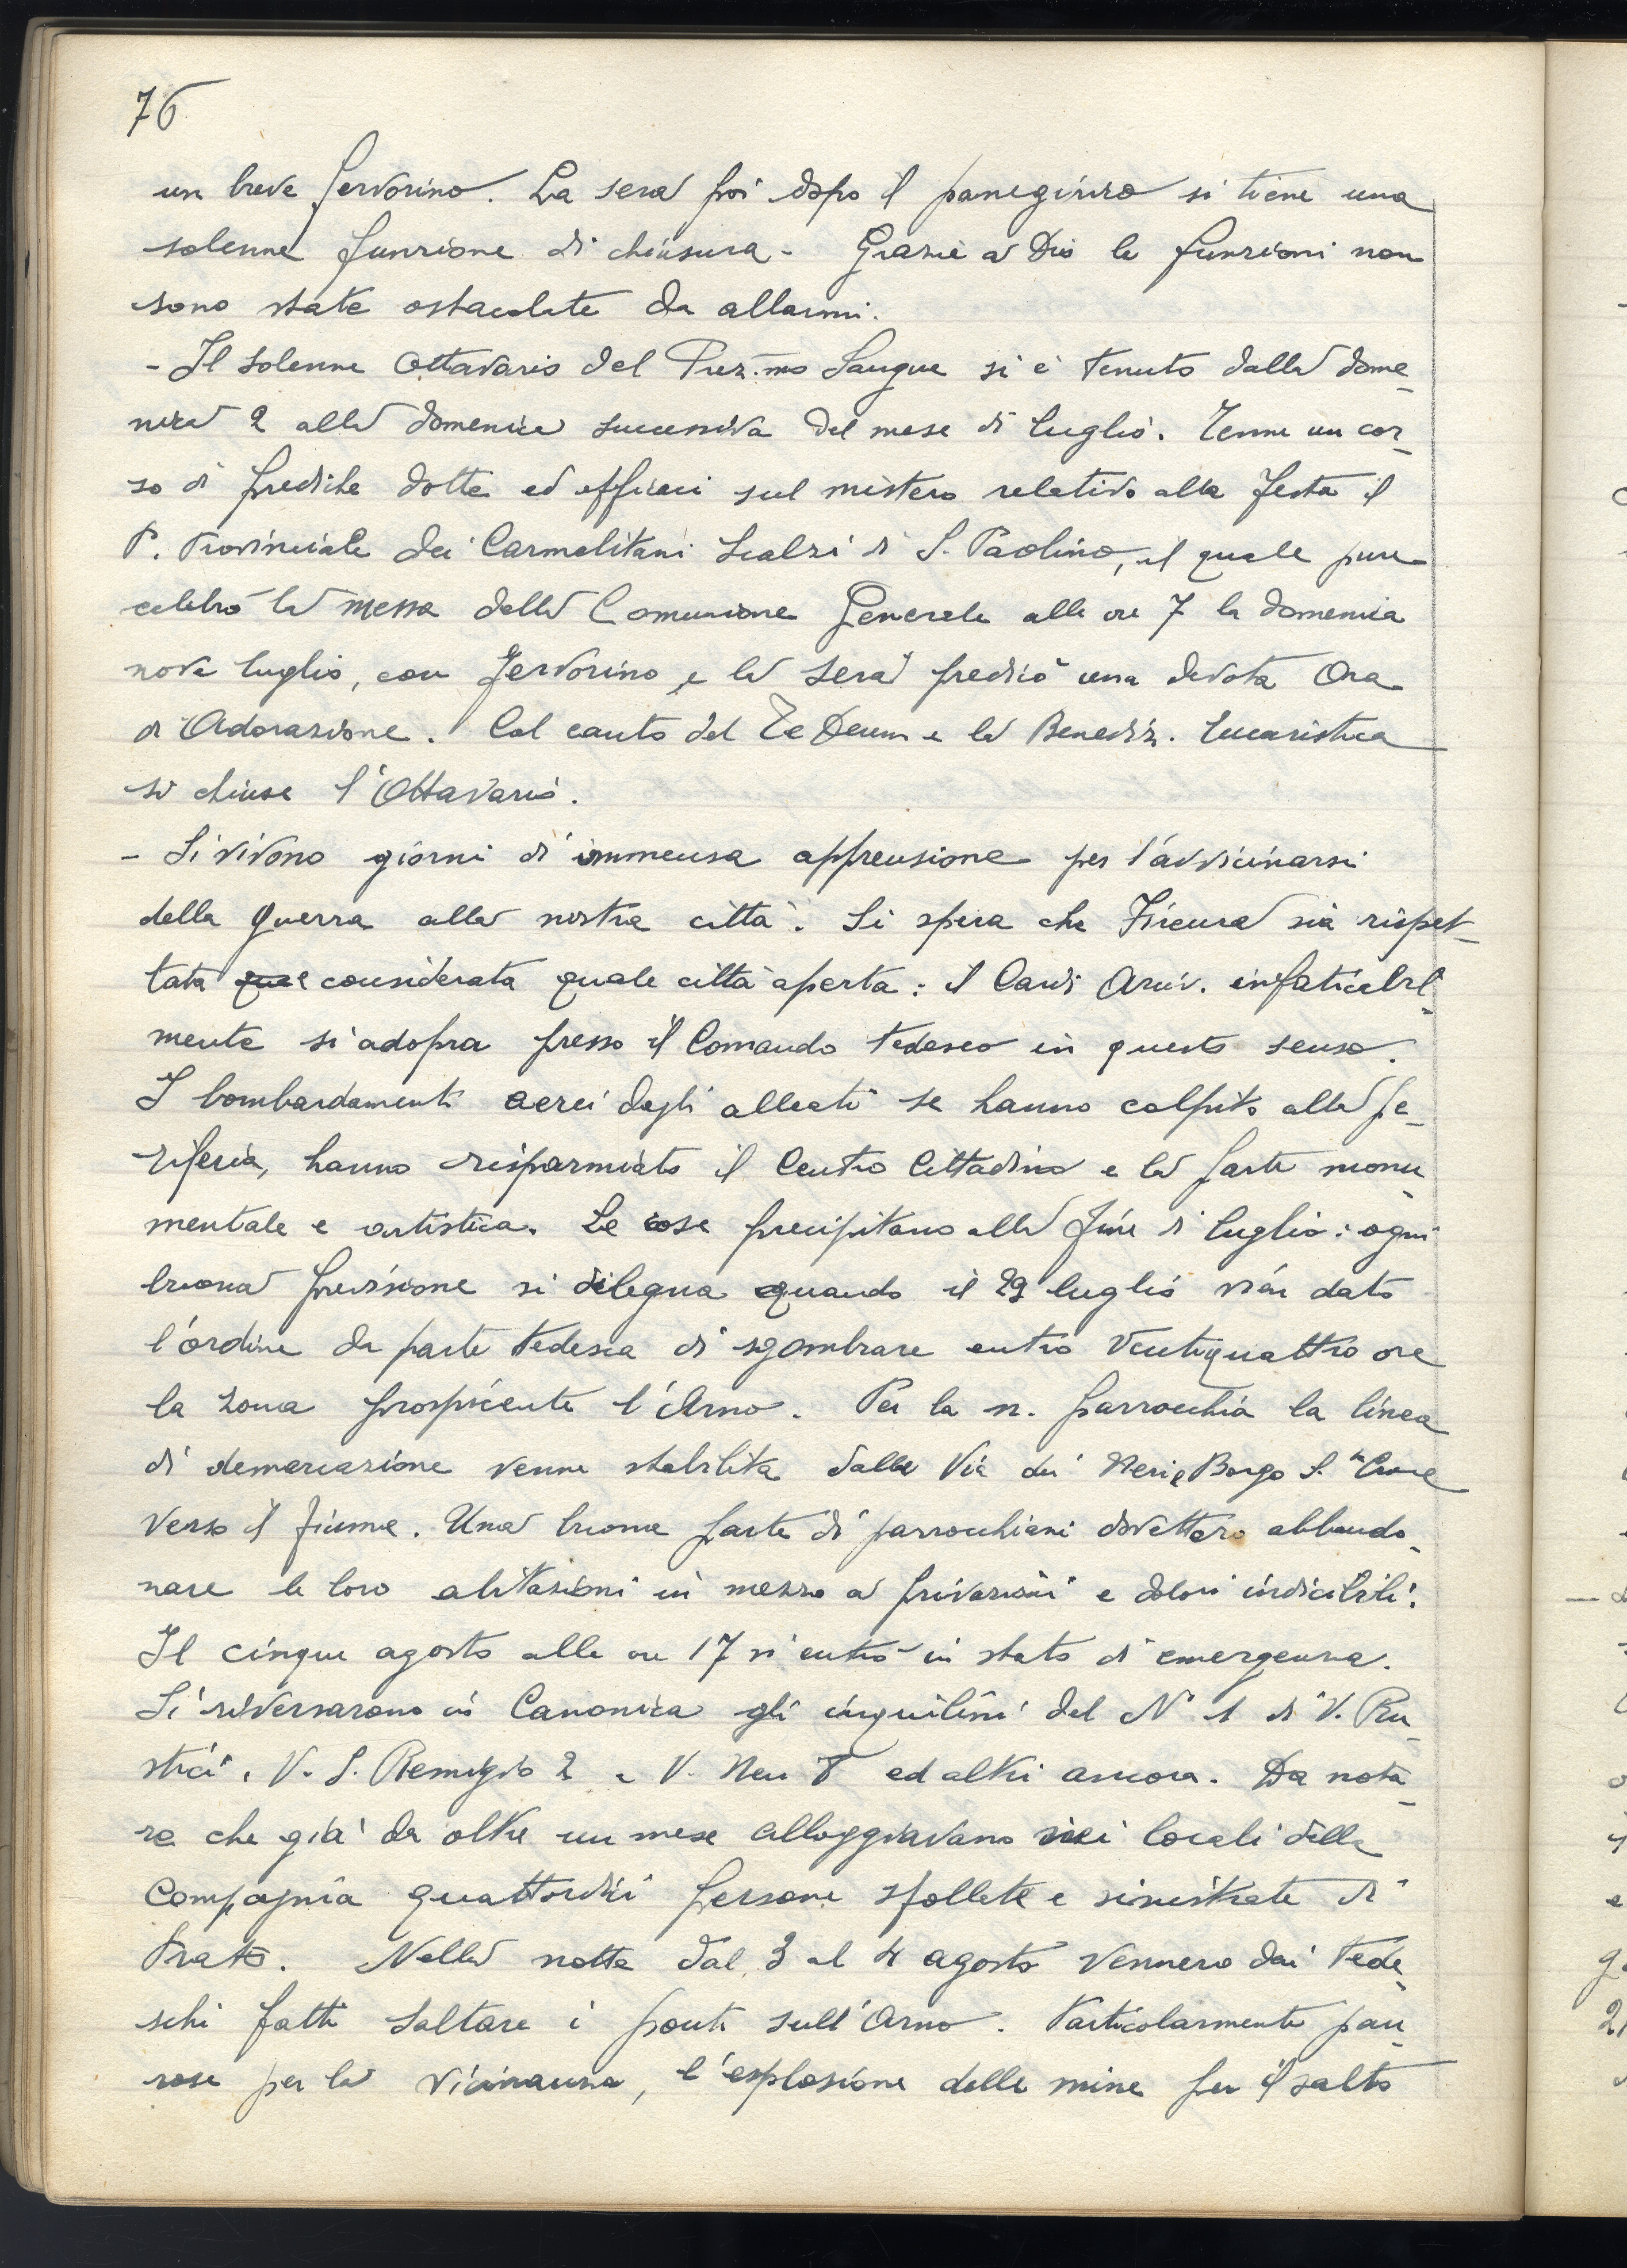 76
un breve fervorino. La sera poi dopo il panegirico si tiene una
solenne funzione di chiusura - Grazie a Dio le funzioni non
sono state ostacolate da allarmi.
- Il solenne Ottavario del Prez.mo Sangue si è tenuto dalla dome-
nica 2 alla domenica successiva del mese di luglio. Tenne un cor-
so di prediche dotte ed efficaci sul mistero relativo alla festa il
P. Provinciale dei Carmelitani Scalzi di S. Paolino, il quale pure
celebrò la messa della Comunione Generale alle ore 7 la domenica
nove luglio, con fervorino e la sera predicò una devota Ora
di Adorazione. Col canto del Te Deum e la Benediz. Eucaristica
si chiuse l'Ottavario.
- Si vivono giorni di immensa apprensione per l'avvicinarsi
della guerra alla nostra città. Si spera che Firenze sia rispet-
tata e considerata quale città aperta: il Card. Arciv. infaticabil-
mente si adopra presso il Comando tedesco in questo senso.
I bombardamenti aerei dagli alleati se hanno colpito alla pe-
riferia, hanno risparmiato il Centro Cittadino e la parte monu-
mentale e artistica. Le cose precipitano alla fine di luglio: ogni
buona previsione si dilegua quando il 29 luglio vien dato
l'ordine da parte tedesca di sgombrare entro ventiquattro ore
la zona prospiciente l'Arno. Per la n. parrocchia la linea
di demarcazione venne stabilita dalla Via dei Neri e Borgo S. Croce
verso il fiume. Una buona parte di parrocchiani dovettero abbando-
nare le loro abitazioni in mezzo a privazioni e dolori indicibili.
Il cinque agosto alle ore 17 si entrò in stato di emergenza.
Si riversarono in Canonica gli inquilini del N° 1 di V. Ru-
stici, V. S. Remigio 2 e V. Neri 8 ed altri ancora. Da nota-
re che già da oltre un mese alloggiavano nei locali della
Compagnia quattordici persone sfollate e sinistrate di
Prato. Nella notte dal 3 al 4 agosto vennero dai tede-
schi fatti saltare i ponti sull'Arno. Particolarmente pau-
rose per la vicinanza, l'esplosione delle mine per il salto